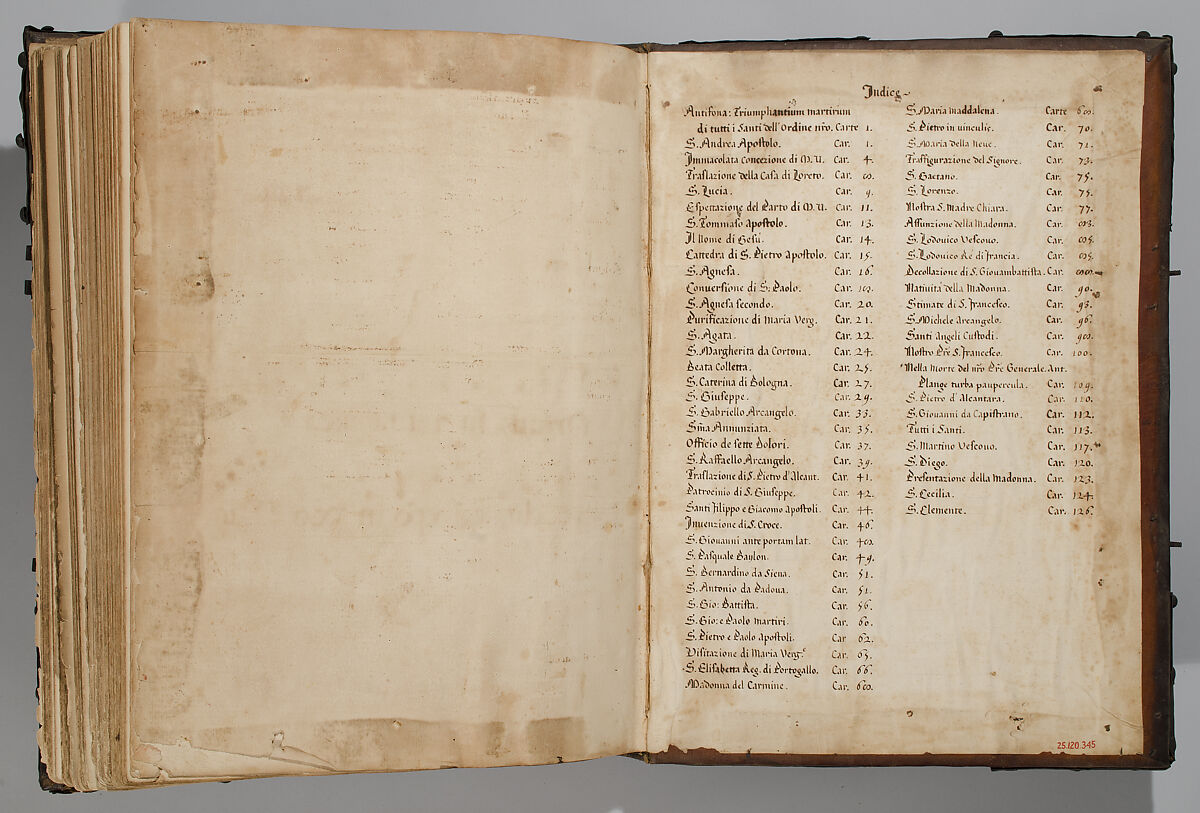 Indice
Antifona: Triumphantium martirum
di tutti i Santi dell'Ordine nr̃o. Carte 1.
S. Andrea Apostolo. Car. 1.
Immacolata Concezione di M.V. Car. 4.
Traslazione della Casa di Loreto. Car. 8.
S. Lucia. Car. 9.
Espettazione del Parto di M.V. Car. 11.
S. Tommaso Apostolo. Car. 13.
Il Nome di Gesù. Car. 14.
Cattedra di S. Pietro Apostolo. Car. 15.
S. Agnesa. Car. 16.
Conversione di S. Paolo. Car. 18.
S. Agnesa secondo. Car. 20.
Purificazione di Maria Verg. Car. 21.
S. Agata. Car. 22.
S. Margherita da Cortona. Car. 24.
Beata Colletta. Car. 25.
S. Caterina di Bologna. Car. 27.
S. Giuseppe. Car. 29.
S. Gabriello Arcangelo. Car. 33.
Sm̃a Annunziata. Car. 35.
Officio de sette Dolori. Car. 37.
S. Raffaello Arcangelo. Car. 39.
Traslazione di S. Pietro d'Alcant. Car. 41.
Patrocinio di S. Giuseppe. Car. 42.
Santi Filippo e Giacomo Apostoli. Car. 44.
Invenzione di S. Croce. Car. 46.
S. Giovanni ante portam lat. Car. 48.
S. Pasquale Baylon. Car. 49.
S. Bernardino da Siena. Car. 51.
S. Antonio da Padova. Car. 51.
S. Gio: Battista. Car. 56.
S. Gio: e Paolo Martiri. Car. 60.
S. Pietro e Paolo Apostoli. Car. 62.
Visitazione di Maria Verg.e Car. 63.
S. Elisabetta Reg. di Portogallo. Car. 66.
Madonna del Carmine. Car. 68.
S. Maria Maddalena. Carte 68.
S. Pietro in vinculis. Car. 70.
S. Maria della Neve. Car. 71.
Trasfigurazione del Signore. Car. 73.
S. Gaetano. Car. 75.
S. Lorenzo. Car. 75.
Nostra S. Madre Chiara. Car. 77.
Assunzione della Madonna. Car. 83.
S. Lodovico Vescovo. Car. 85.
S. Lodovico Re di Francia. Car. 85.
Decollazione di S. Giovambattista. Car. 88.
Natività della Madonna. Car. 90.
Stimate di S. Francesco. Car. 93.
S. Michele Arcangelo. Car. 96.
Santi Angeli Custodi. Car. 98.
Nostro Pr̃e S. Francesco. Car. 100.
Nella Morte del nr̃o Pr̃e Generale. Ant.
Plange turba paupercula. Car. 109.
S. Pietro d'Alcantara. Car. 110.
S. Giovanni da Capistrano. Car. 112.
Tutti i Santi. Car. 113.
S. Martino Vescovo. Car. 117.
S. Diego. Car. 120.
Presentazione della Madonna. Car. 123.
S. Cecilia. Car. 124.
S. Clemente. Car. 126.
25.120.345